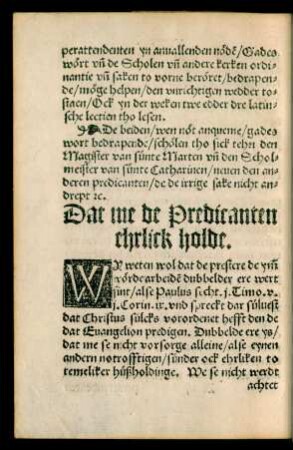 perattendenten yn anuallenden nödē/Gades
wört vñ de Scholen vñ andere kerken ordi-
nantie vñ saken to vorne beröret/bedrapen-
de/möge helpen/den vnrichtigen wedder to-
staen/Ock yn der weken twe edder dre latin-
sche lectien tho lesen.
De beiden/wen nöt anqueme/gades
wort bedrapende/schölen tho sick tehn den
Magister van sünte Marten vñ den Schol-
meister van sünte Catharinen/neuen den an-
deren predicanten/de de irrige sake nicht an-
drept ꝛc.
Dat me de Predicanten
ehrlick holde.
WY weten wol dat de prestere de ym̄
wörde arbeidē dubbelder ere wert
sint/alse Paulus secht. j. Timo. v.
j. Corin. ix. vnd spreckt dar süluest
dat Christus sülcks vorordenet hefft den de
dat Euangelion predigen. Dubbelde ere ys/
dat me se nicht vorsorge alleine/alse eynen
andern notrofftigen/sünder ock ehrliken to
temeliker hüßholdinge. We se nicht werdt
achtet